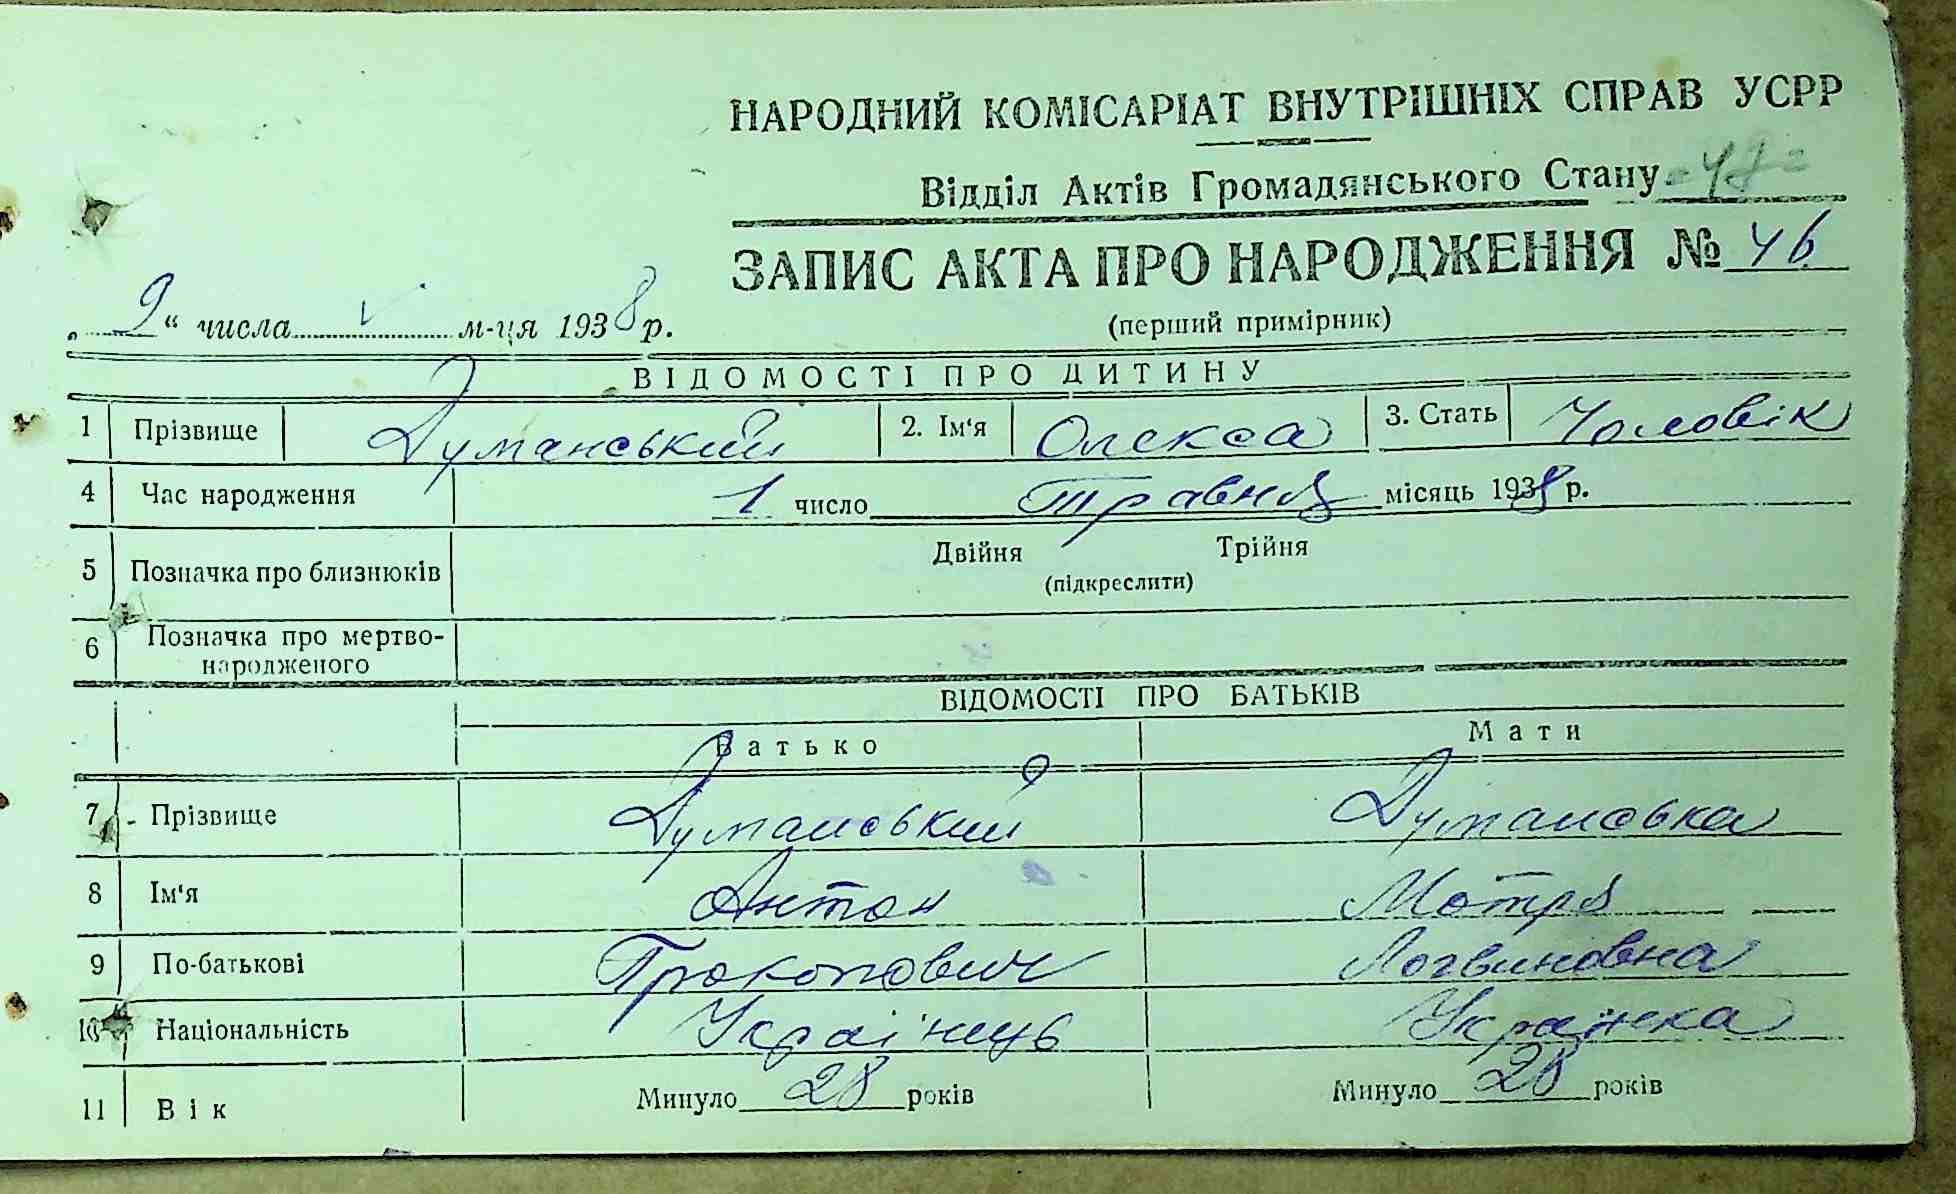 НАРОДНИЙ КОМІСАРІАТ ВНУТРІШНІХ СПРАВ УСРР
Відділ Актів Громадянського Стану
ЗАПИС АКТА ПРО НАРОДЖЕННЯ № 46
„ 9 “ числа V м-ця 1938 р.
(перший примірник)
ВІДОМОСТІ ПРО ДИТИНУ
1 Прізвище Думанський 2. Ім'я Олекса 3. Стать Чоловік
4 Час народження 1 число Травня місяць 1938 р.
Двійня Трійня
5 Позначка про близнюків (підкреслити)
6 Позначка про мертво-
народженого
ВІДОМОСТІ ПРО БАТЬКІВ
Батько Мати
7 Прізвище Думанський Думанська
8 Ім'я Антон Мотря
9 По-батькові Прокопович Логвиновна
10 Національність Українець Українка
11 Вік Минуло 28 років Минуло 28 років